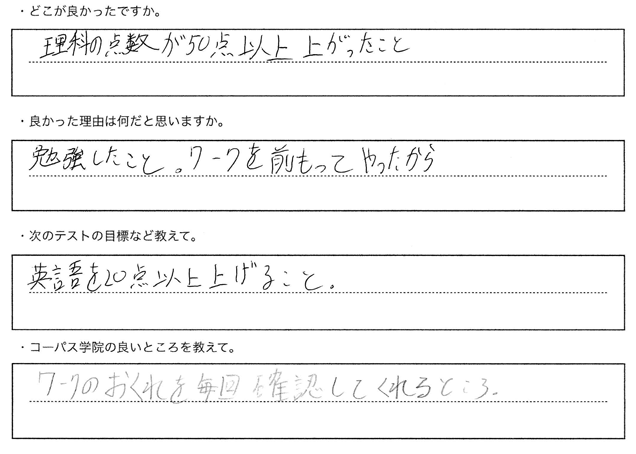 ・どこが良かったですか。
理科の点数が50点以上上がったこと
・良かった理由は何だと思いますか。
勉強したこと。ワークを前もってやったから
・次のテストの目標など教えて。
英語を20点以上上げること。
・コーパス学院の良いところを教えて。
ワークのおくれを毎回確認してくれるところ。